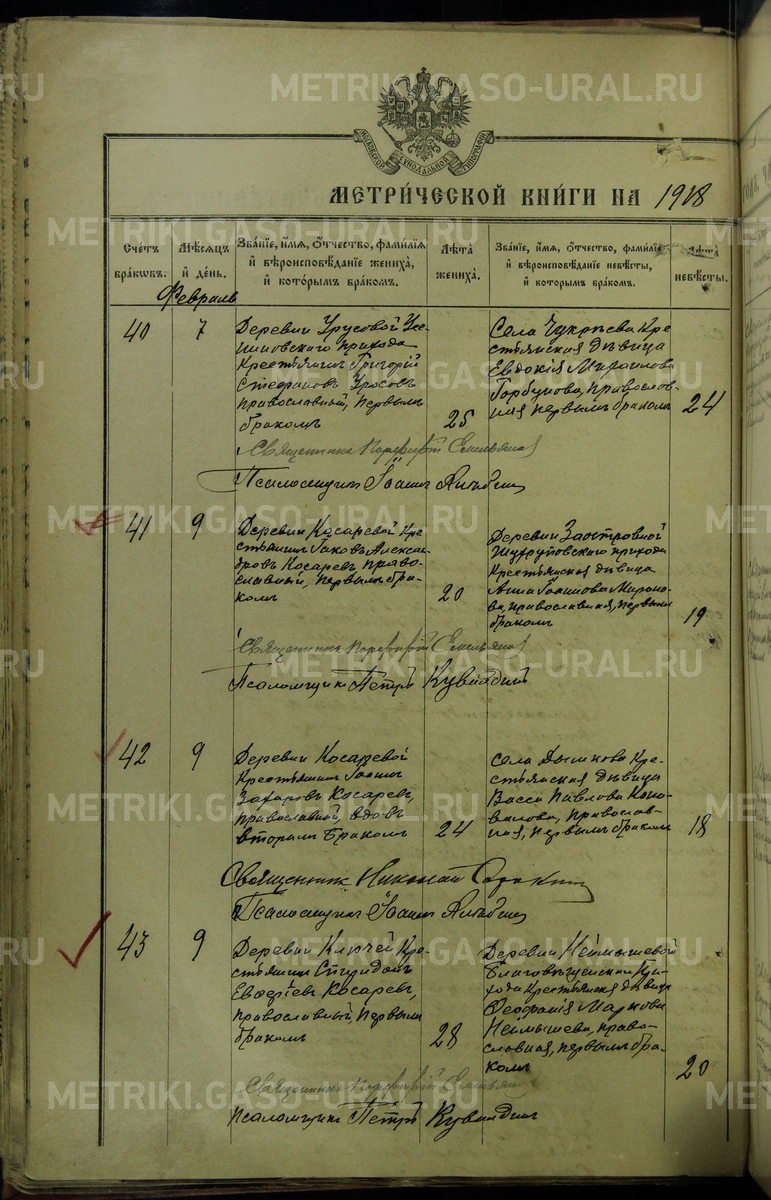 METRIKI.GASO-URAL.RU
МОСКОВСКОЙ СѴНОДАЛЬНОЙ ТИПОГРАФІИ
МЕТРИ́ЧЕСКОЙ КНИ́ГИ НА 1918
Сче́тъ бра́ковъ.
Мѣ́сяцъ и҆ де́нь.
Зва́нїе, и҆́мя, ѻ҆́тчество, фами́лїя и҆ вѣроисповѣ́данїе жениха̀, и҆ кото́рымъ бра́комъ.
Лѣ́та жениха̀.
Зва́нїе, и҆́мя, ѻ҆́тчество, фами́лїя и҆ вѣроисповѣ́данїе невѣ́сты, и҆ которымъ бра́комъ.
Лѣ́та невѣ́сты.
Февраль
40
7
Деревни Урусовой
прихода
Крестьянинъ Григорій
Стефановъ Урусовъ
православный, первымъ
бракомъ
25
Села Чукреева Кре-
стьянская дѣвица
Евдокія Михаилова
Горбунова, православ-
ная первымъ бракомъ
24
Священникъ Порфирій
Псаломщикъ Іоаннъ
41
9
Деревни Косаревой Кре-
стьянинъ Іаковъ Алексан-
дровъ Косаревъ право-
славный, первымъ бра-
комъ
20
Деревни Заостровной
прихода
Крестьянская дѣвица
Анна Іоаннова Мироно-
ва, православная, первымъ
бракомъ
19
Священникъ Порфирій
Псаломщикъ Петръ
42
9
Деревни Косаревой
Крестьянинъ Іоаннъ
Захаровъ Косаревъ,
православный, вдовъ
вторымъ бракомъ
24
Села Дымкова Кре-
стьянская дѣвица
Васса Павлова Коно-
валова, православ-
ная, первымъ бракомъ
18
Священникъ Николай
Псаломщикъ Іоаннъ
43
9
Деревни Ключей Кре-
стьянинъ Спиридонъ
Косаревъ,
православный первымъ
бракомъ
28
Деревни Неймышевой
Благовѣщенскаго при-
хода Крестьянская дѣвица
Феофанія Маркова
Неймышева, право-
славная, первымъ бра-
комъ
20
Священникъ Порфирій
Псаломщикъ Петръ